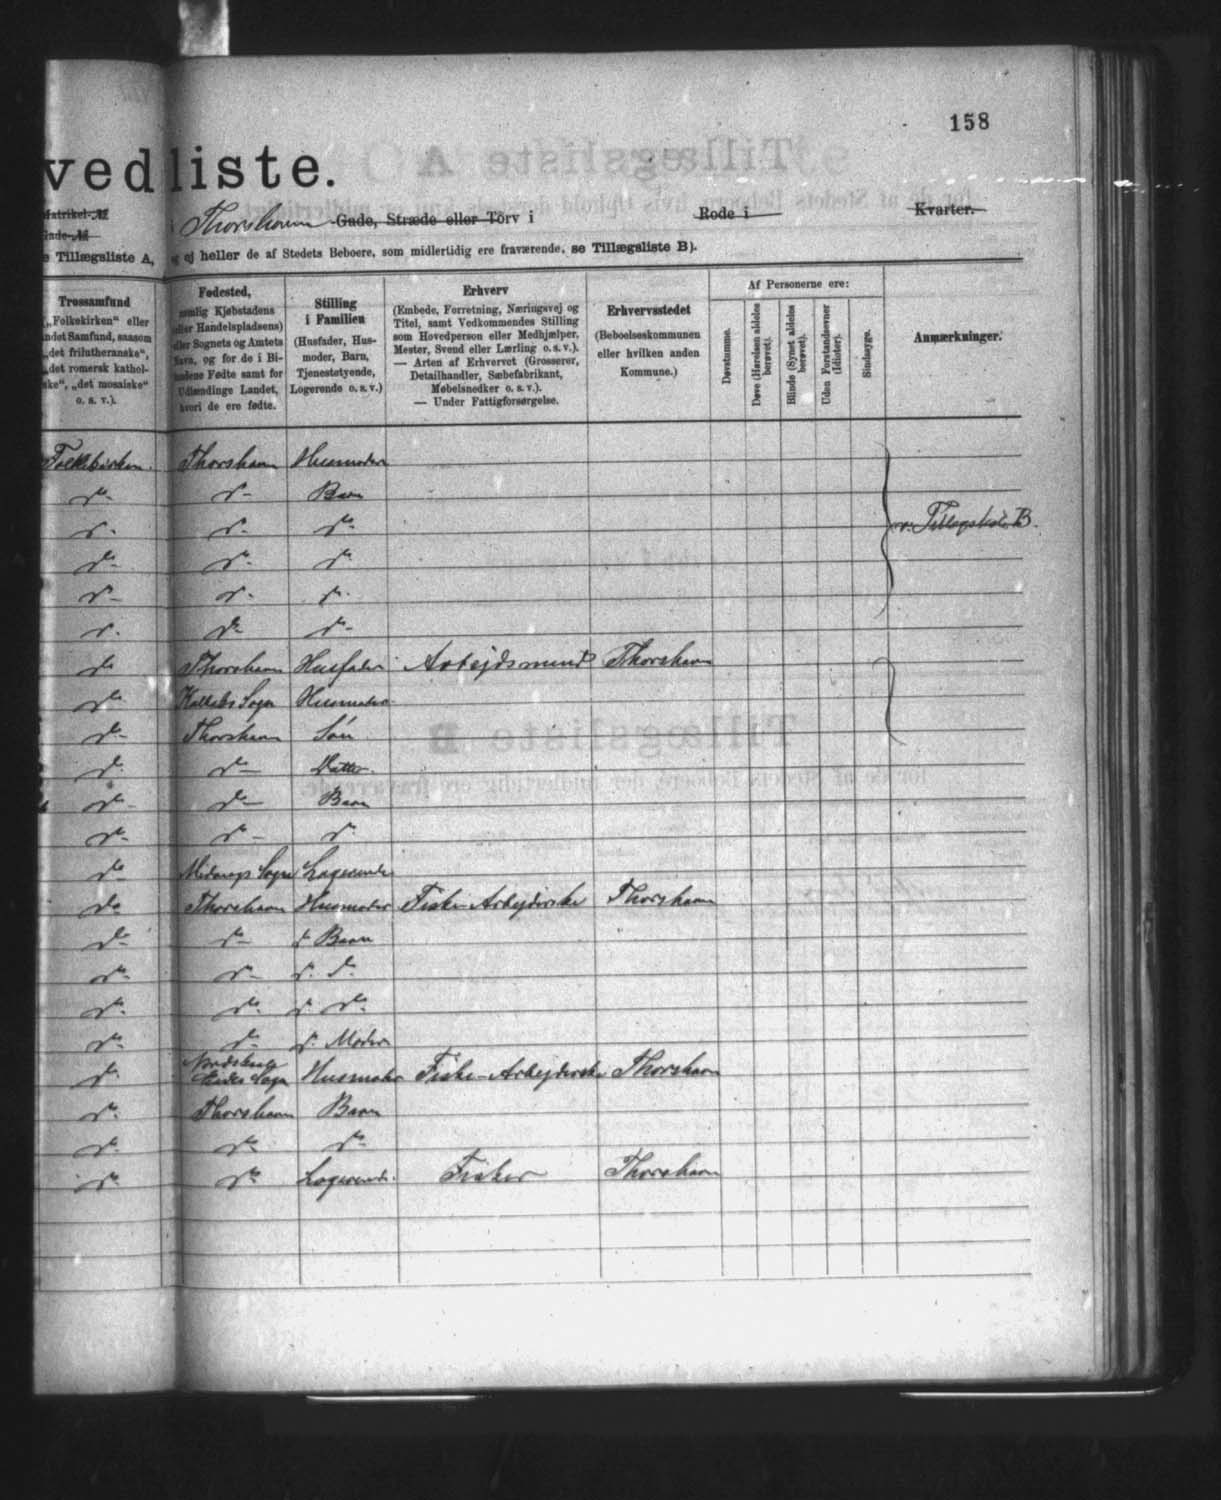 158
vedliste.
Matrikel-№
Gade-№
Thorshavn Gade, Stræde eller Torv i Rode i Kvarter.
e Tillægsliste A, og ej heller de af Stedets Beboere, som midlertidig ere fraværende, se Tillægsliste B).
Trossamfund
(„Folkekirken“ eller
andet Samfund, saasom
„det frilutheranske“,
„det romersk kathol-
ske“, „det mosaiske“
o. s. v.).
Fødested,
nemlig Kjøbstadens
eller Handelspladsens)
eller Sognets og Amtets
Navn, og for de i Bi-
landene Fødte samt for
Udlændinge Landet,
hvori de ere fødte.
Stilling
i Familien
(Husfader, Hus-
moder, Barn,
Tjenestetyende,
Logerende o. s. v.)
Erhverv
(Embede, Forretning, Næringsvej og
Titel, samt Vedkommendes Stilling
som Hovedperson eller Medhjælper,
Mester, Svend eller Lærling o. s. v.).
— Arten af Erhvervet (Grosserer,
Detailhandler, Sæbefabrikant,
Møbelsnedker o. s. v.).
— Under Fattigforsørgelse.
Erhvervsstedet
(Beboelseskommunen
eller hvilken anden
Kommune.)
Af Personerne ere:
Døvstumme.
Døve (Hørelsen aldeles
berøvet).
Blinde (Synet aldeles
berøvet).
Uden Forstandsevner
(Idioter).
Sindssyge.
Anmærkninger.
Folkekirken. Thorshavn Husmoder
do do Barn
do do do v. Tillægsliste B.
do do do
do do do
do do do
do Thorshavn Husfader Arbejdsmand Thorshavn
do Sogn Husmoder
do Thorshavn Søn
do do Datter
do do Barn
do do do
do Sogn Logerende
do Thorshavn Husmoder Fiske-Arbejderske Thorshavn
do do do Barn
do do do do
do do do do
do do do Moder
do Sogn Husmoder Fiske-Arbejderske Thorshavn
do Thorshavn Barn
do do do
do do Logerende Fisker Thorshavn